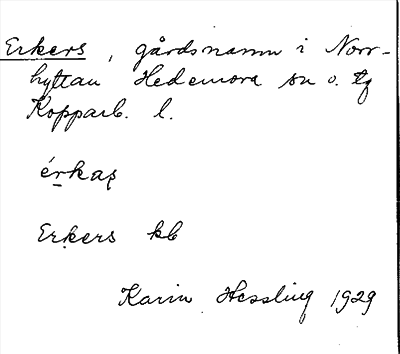 Erkers, gårdsnamn i Norr-
hyttan Hedemora sn o. tg
Kopparb. l.
érkaʂ
Erkers kb
Karin Hessling 1929